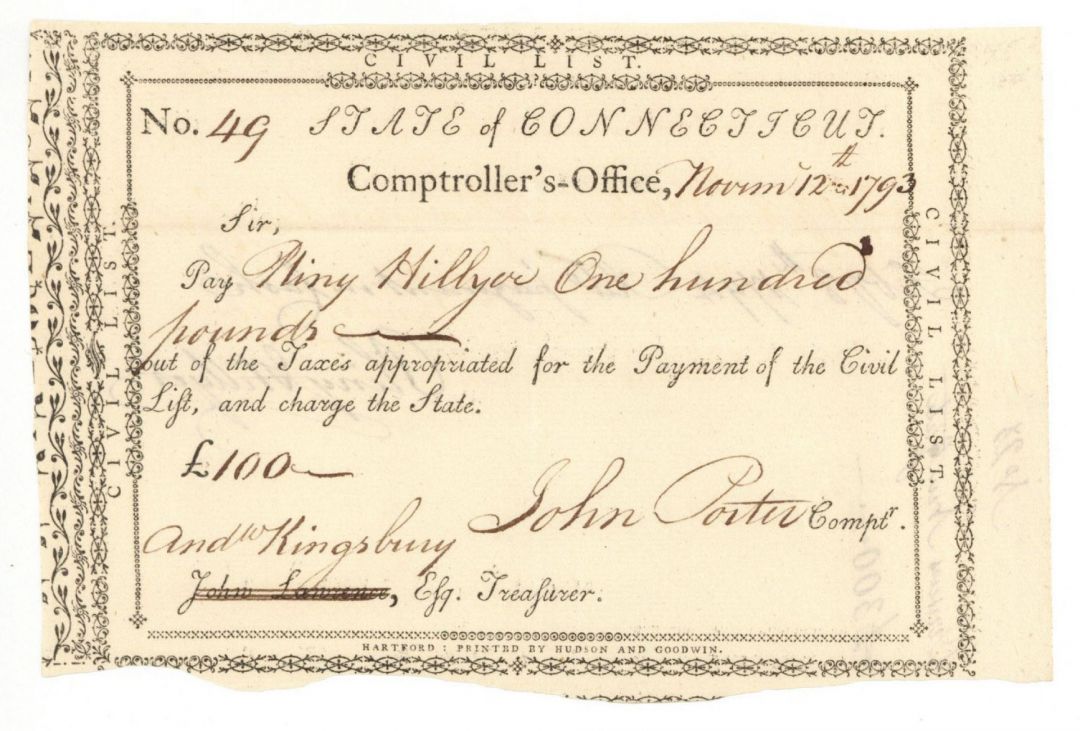 CIVIL LIST.
No. 49 STATE of CONNECTICUT.
Comptroller's-Office, Novem 12th 1793
Sir,
Pay Pliny Hillyer One hundred
pounds
out of the Taxes appropriated for the Payment of the Civil
List, and charge the State.
£100
John Porter Comptr.
Andw Kingsbury
John Lawrence, Esq. Treasurer.
HARTFORD: PRINTED BY HUDSON AND GOODWIN.
CIVIL LIST.
CIVIL LIST.